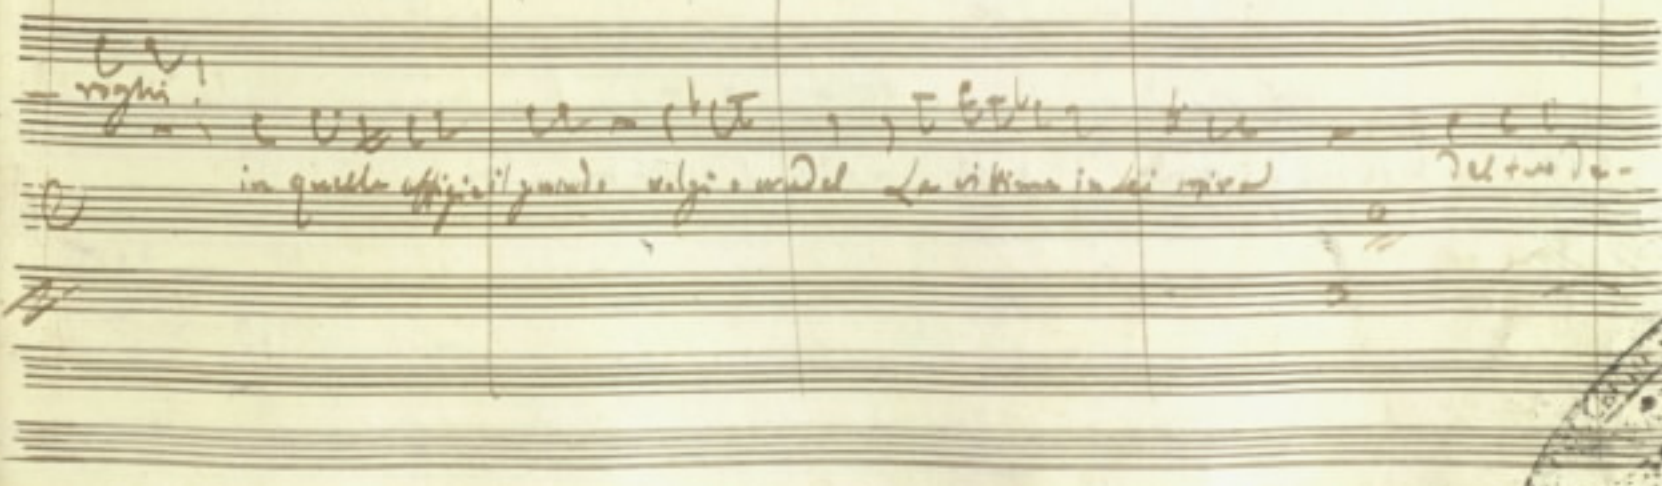 voglii!
in quella effigie il guardo volgi o crudel La vittima in lei mira
Del tuo